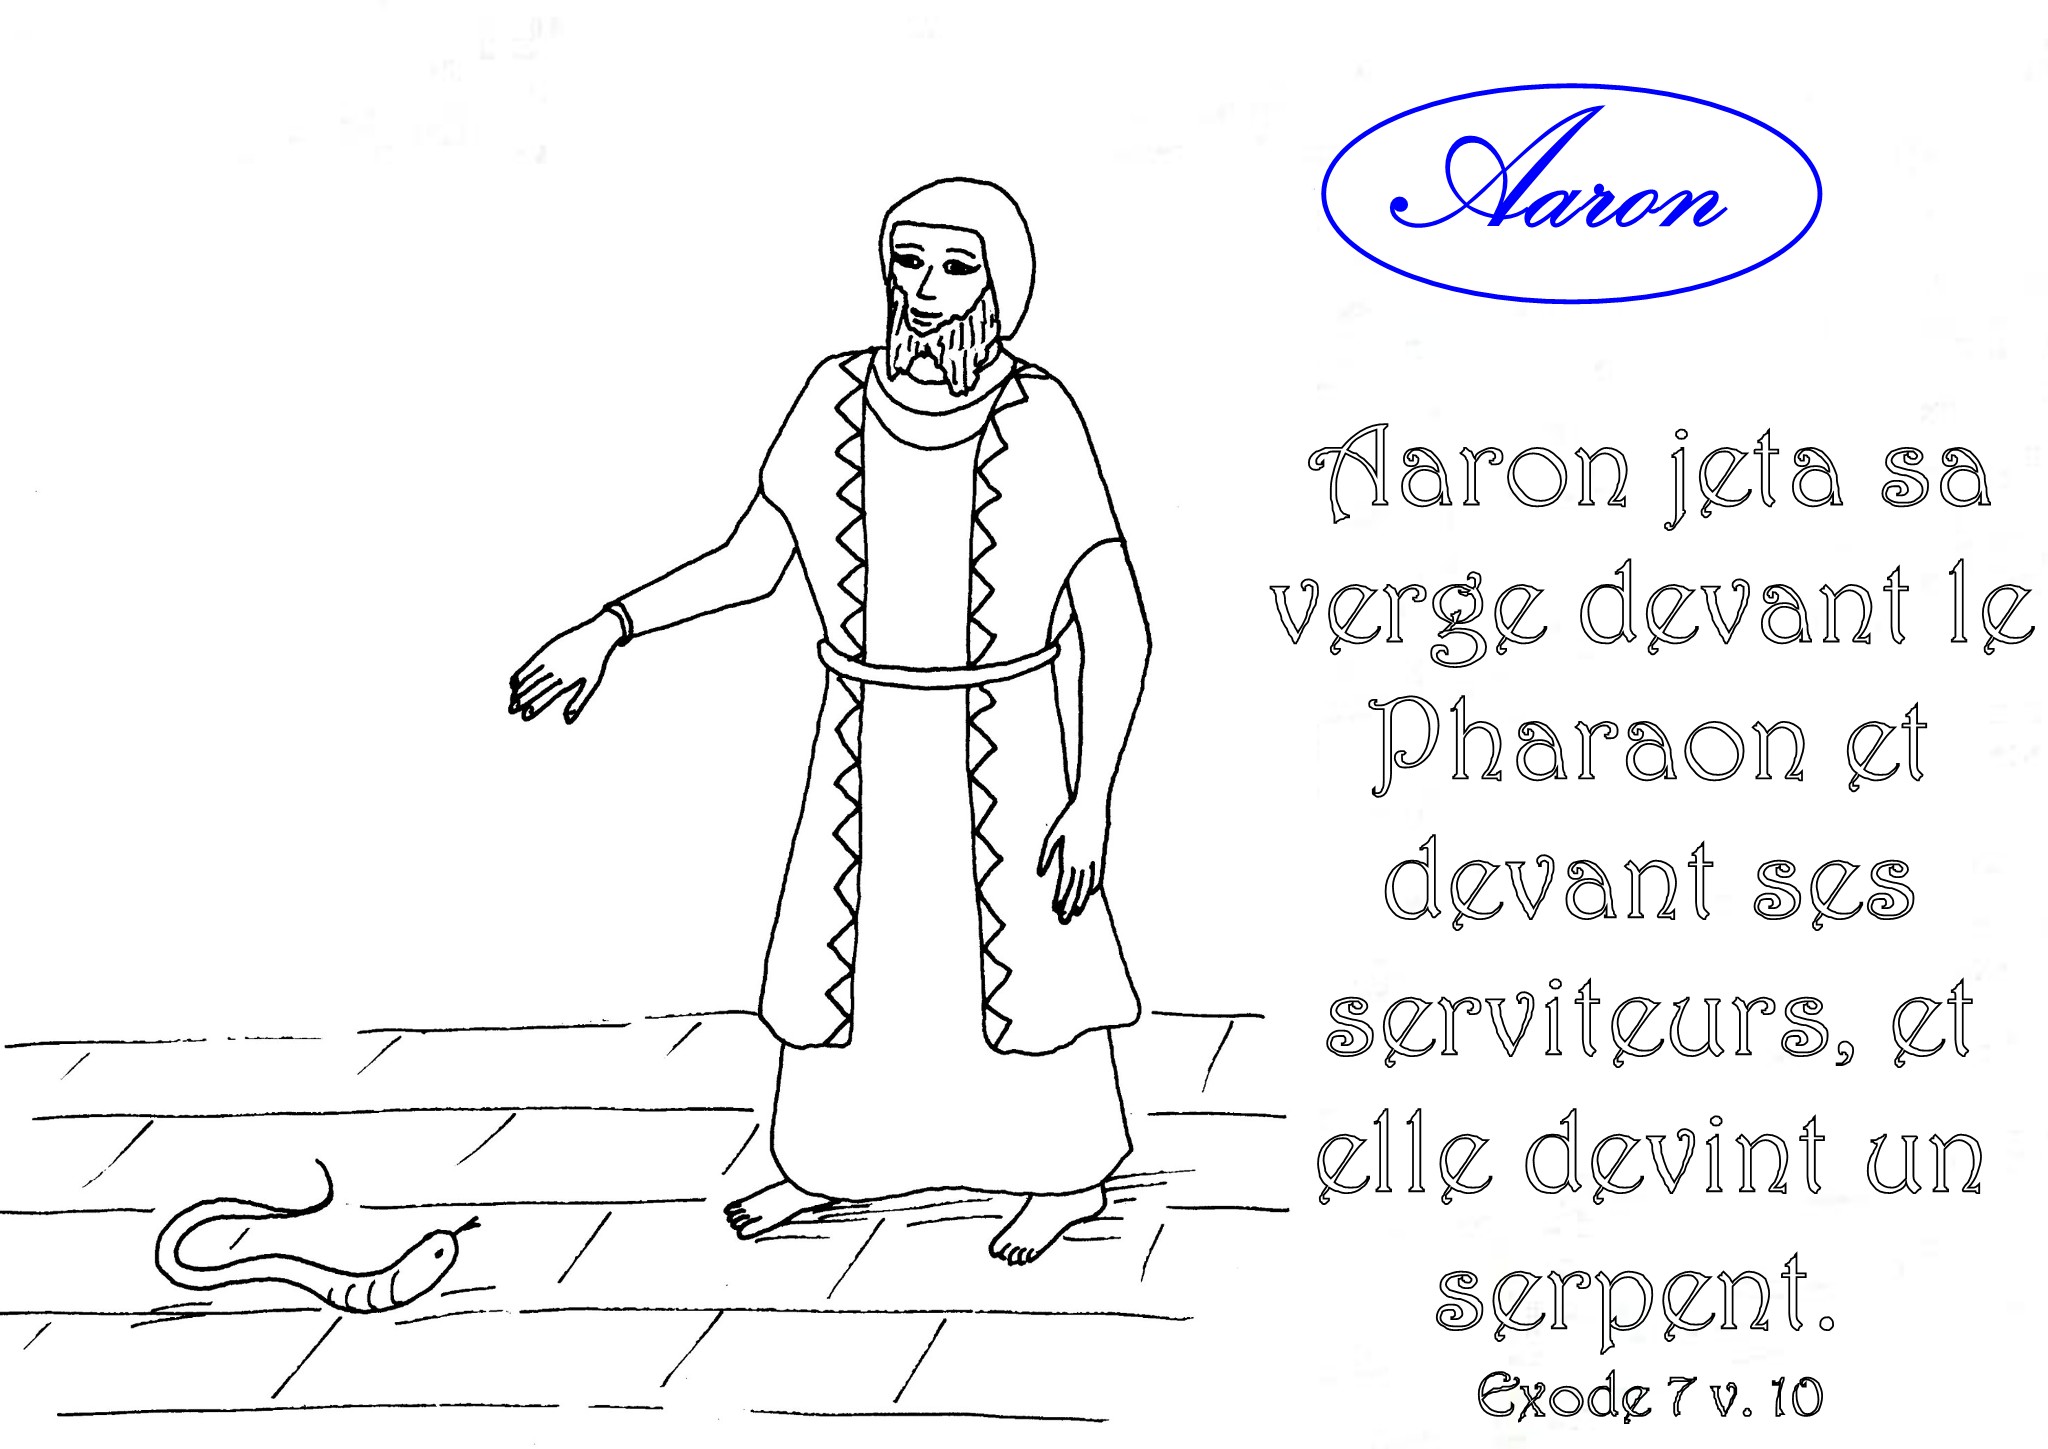 Aaron
Aaron jeta sa
verge devant le
Pharaon et
devant ses
serviteurs, et
elle devint un
serpent.
Exode 7 v. 10